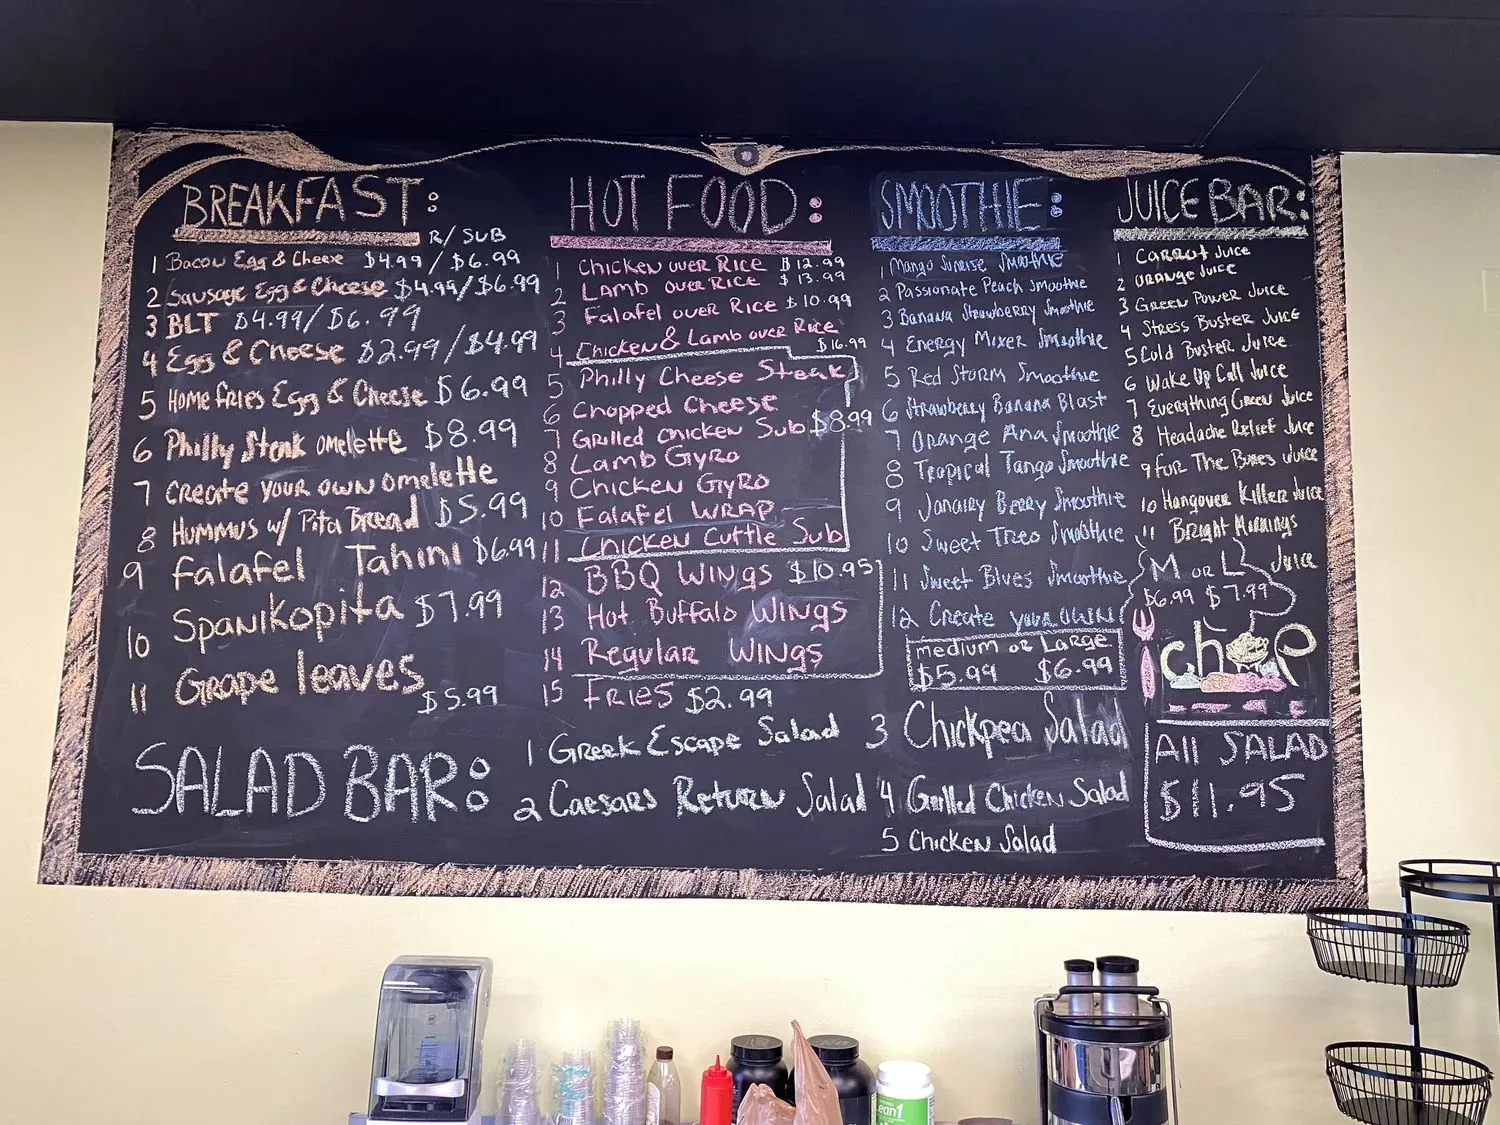 BREAKFAST:
R/ SUB
1 Bacon Egg & Cheese $4.99 / $6.99
2 Sausage Egg & Cheese $4.99/$6.99
3 BLT $4.99/$6.99
4 Egg & Cheese $2.99/$4.99
5 Home fries Egg & Cheese $6.99
6 Philly Steak omelette $8.99
7 Create your own omelette
8 Hummus w/ Pita Bread $5.99
9 Falafel Tahini $6.99
10 Spanikopita $7.99
11 Grape leaves
$5.99
HOT FOOD:
1 Chicken over Rice $12.99
2 Lamb over Rice $13.99
3 Falafel over Rice $10.99
4 Chicken & Lamb over Rice
$16.99
5 Philly Cheese Steak
6 Chopped Cheese
7 Grilled chicken Sub $8.99
8 Lamb Gyro
9 Chicken Gyro
10 Falafel WRAP
11 Chicken Cuttle Sub
12 BBQ Wings $10.95
13 Hot Buffalo Wings
14 Regular Wings
15 Fries $2.99
SMOOTHIE:
1 Mango Sunrise Smoothie
2 Passionate Peach Smoothie
3 Banana Strawberry Smoothie
4 Energy Mixer Smoothie
5 Red Storm Smoothie
6 Strawberry Banana Blast
7 Orange Ana Smoothie
8 Tropical Tango Smoothie
9 January Berry Smoothie
10 Sweet Treo Smoothie
11 Sweet Blues Smoothie
12 Create your own
medium or Large
$5.99 $6.99
JUICE BAR:
1 Carrot Juice
2 Orange Juice
3 Green Power Juice
4 Stress Buster Juice
5 Cold Buster Juice
6 Wake Up Call Juice
7 Everything Green Juice
8 Headache Relief Juice
9 For The Bones Juice
10 Hangover Killer Juice
11 Bright Mornings
Juice
M or L
$6.99 $7.99
chop
SALAD BAR:
1 Greek Escape Salad
2 Caesars Return Salad
3 Chickpea Salad
4 Grilled Chicken Salad
5 Chicken Salad
All SALAD
$11.95